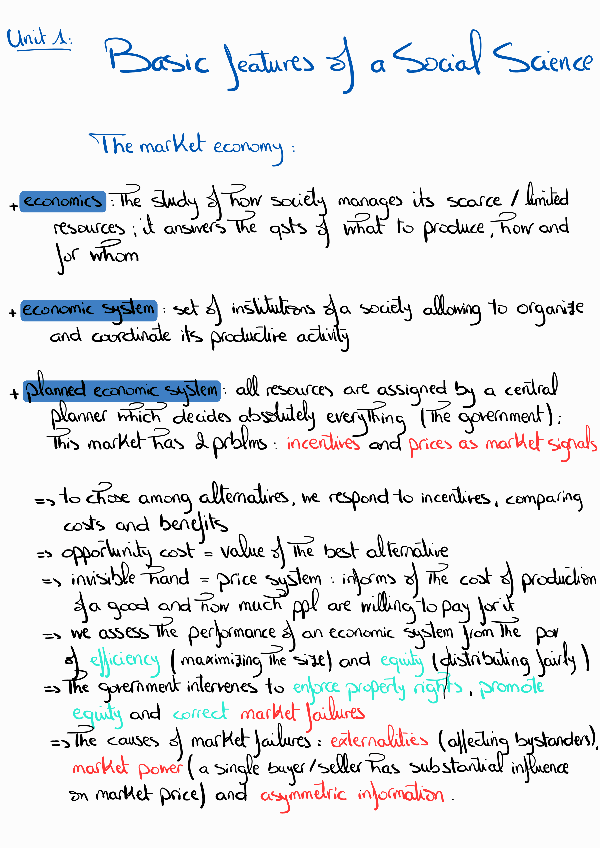 Unit 1:
Basic features of a Social Science
The market economy:
+ economics: the study of how society manages its scarce / limited
resources; it answers the qsts of what to produce, how and
for whom
+ economic system: set of institutions of a society allowing to organize
and coordinate its productive activity
+ planned economic system: all resources are assigned by a central
planner which decides absolutely everything (the government);
this market has 2 prblms: incentives and prices as market signals
=> to chose among alternatives, we respond to incentives, comparing
costs and benefits
=> opportunity cost = value of the best alternative
=> invisible hand = price system: informs of the cost of production
of a good and how much ppl are willing to pay for it
=> we assess the performance of an economic system from the pov
of efficiency (maximizing the size) and equity (distributing fairly)
=> the government intervenes to enforce property rights, promote
equity and correct market failures
=> the causes of market failures: externalities (affecting bystanders),
market power (a single buyer/seller has substantial influence
on market price) and asymmetric information.